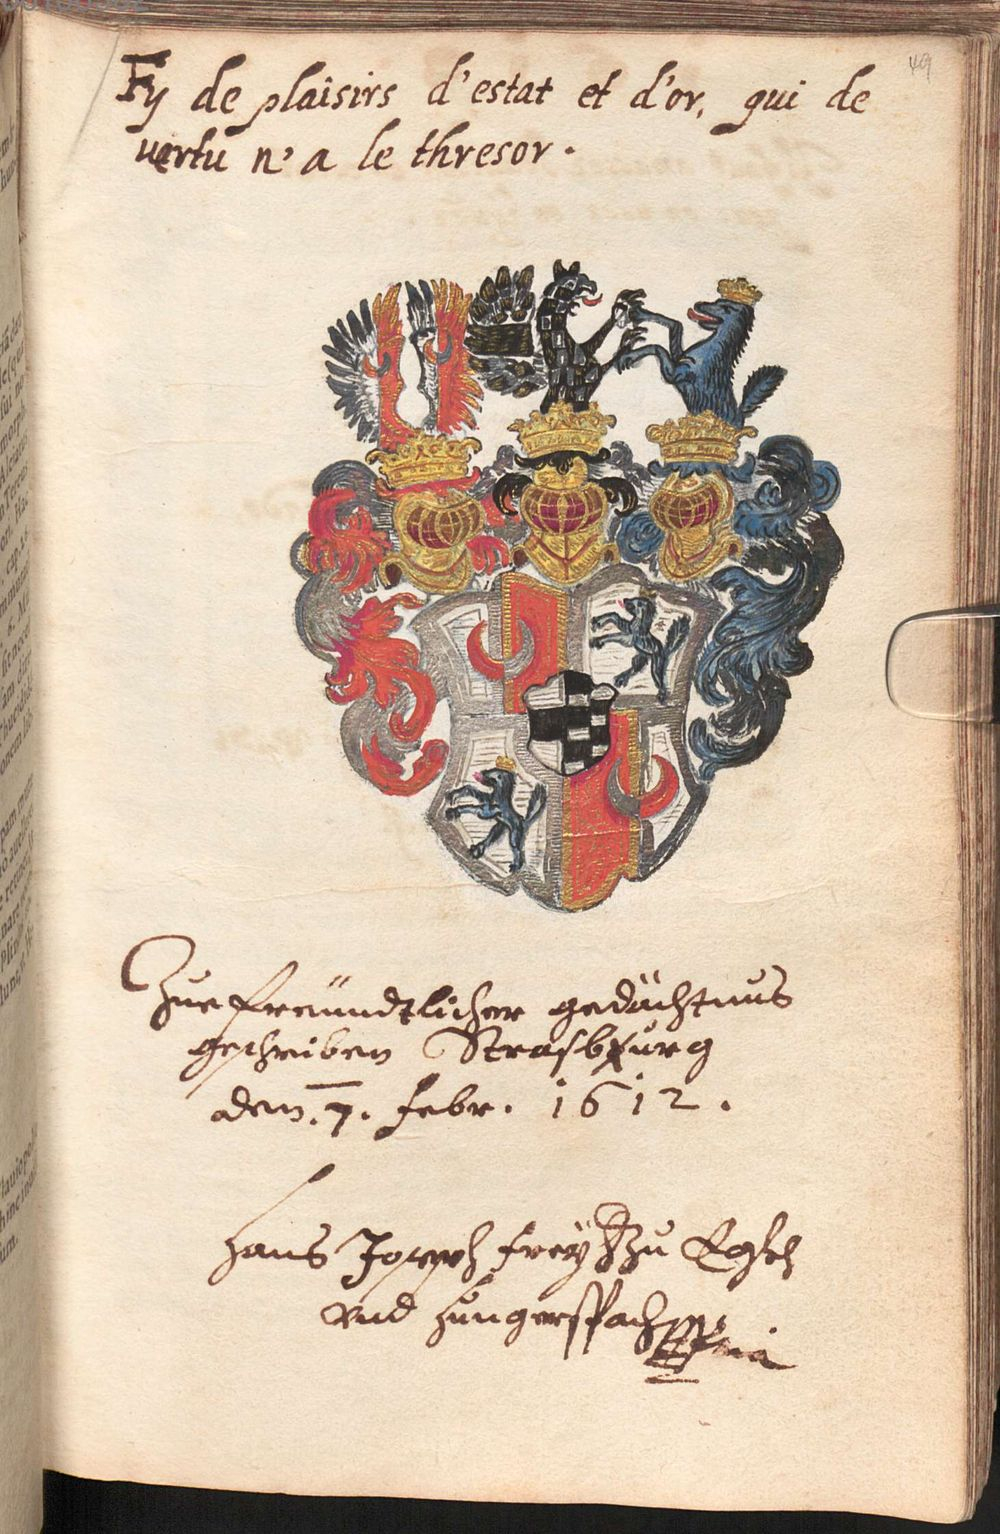 49
Fy de plaisirs d'estat et d'or, qui de
vertu n'a le thresor.
Zue freündtlicher gedächtnus
geschriben Strasburg
den. 7. febr. 1612.
Hans Joseph freÿh zu Egkh
vnd Hungerspach